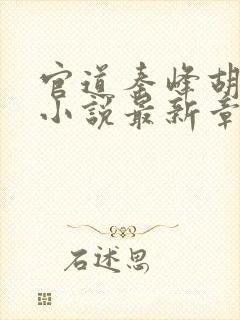 官道秦峰胡
小说最新章
石述思